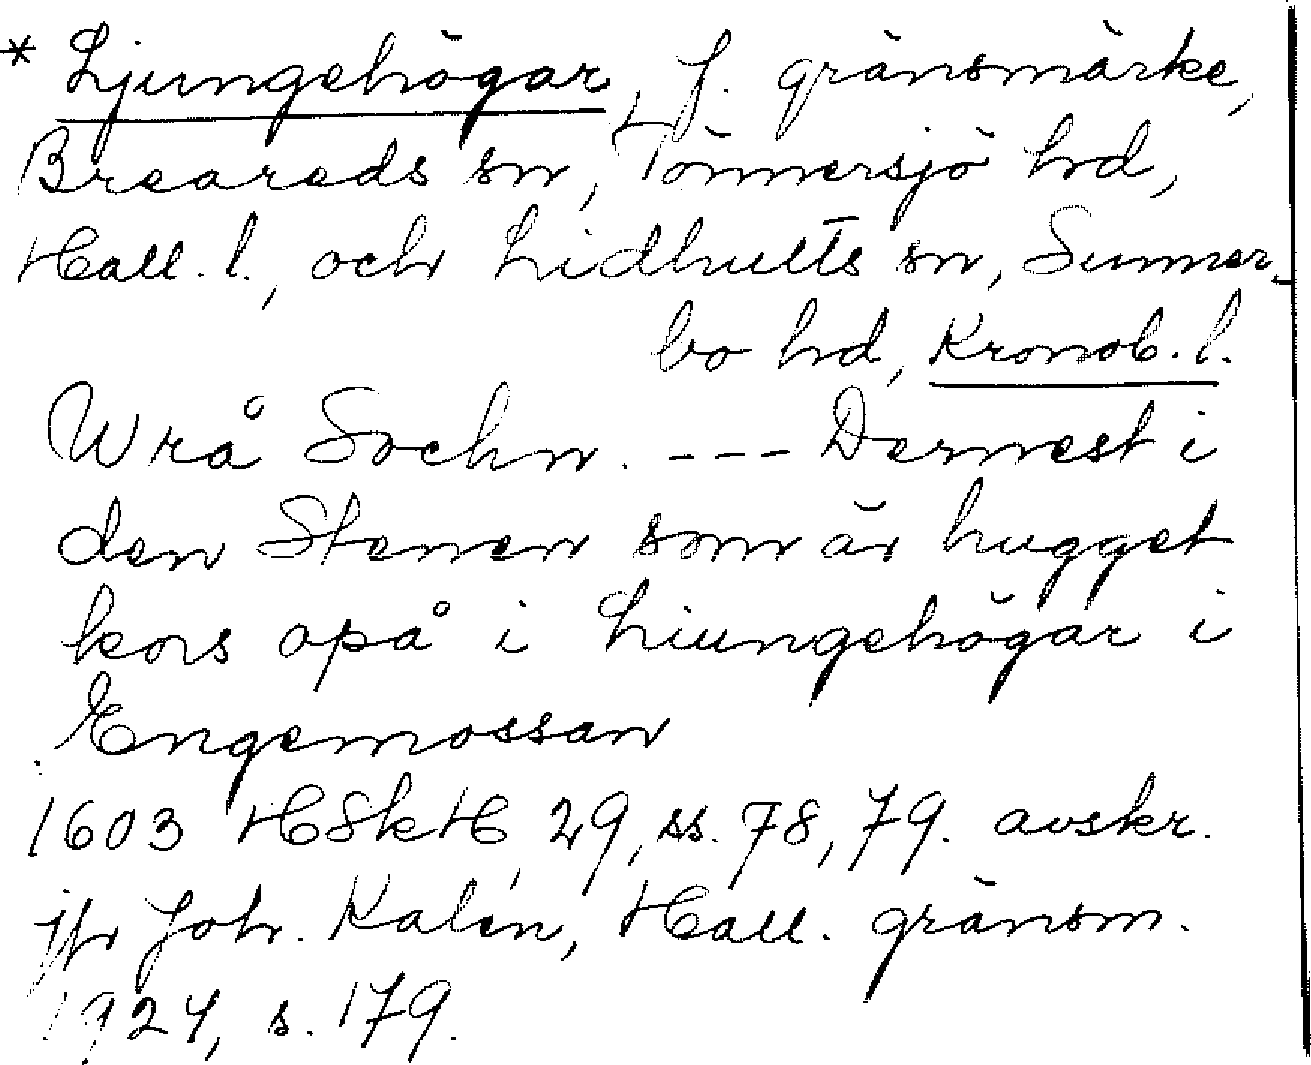 * Ljungehögar, f. gränsmärke,
Breareds sn, Tönnersjö hd,
Hall. l., och Lidhults sn, Sunner-
bo hd, Kronob. l.
Wrå Sochn. --- Dernest i
den Stenen som är hugget
kors opå i Liungehögar i
Engemossan
1603 HSkH, 29, ss. 78, 79. avskr.
jfr Joh. Kalén, Hall. gränsm.
1924, s. 179.